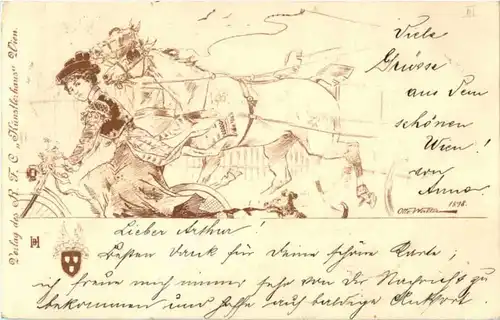 Viele
Grüsse
aus dem
schönen
Wien!
von
Anna.
1898.
Verlag des R. T. C. „Künstlerhaus" Wien.
Lieber Arthur!
Besten Dank für Deine schöne Karte;
ich freue mich immer sehr von Dir Nachricht zu
bekommen und hoffe auf baldige Antwort.